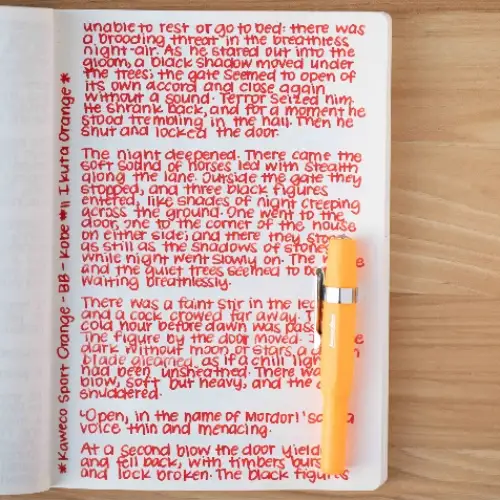 unable to rest or go to bed: there was
a brooding threat in the breathless
night-air. As he stared out into the
gloom, a black shadow moved under
the trees; the gate seemed to open of
its own accord and close again
without a sound. Terror seized him.
He shrank back, and for a moment he
stood trembling in the hall. Then he
shut and locked the door.
The night deepened. There came the
soft sound of horses led with stealth
along the lane. Outside the gate they
stopped, and three black figures
entered, like shades of night creeping
across the ground. One went to the
door, one to the corner of the house
on either side; and there they
as still as the shadows of
while night went slowly on. The
and the quiet trees seemed to
waiting breathlessly.
There was a faint stir in the
and a cock crowed far away.
cold hour before dawn was
The figure by the door moved.
dark without moon or stars, a
blade gleamed, as if a chill
had been unsheathed. There
blow, soft but heavy, and the
shuddered.
'Open, in the name of Mordor!'
voice thin and menacing.
At a second blow the door
and fell back, with timbers
and lock broken. The black figures
*Kaweco Sport Orange - BB - Kobe #11 Ikuta Orange*